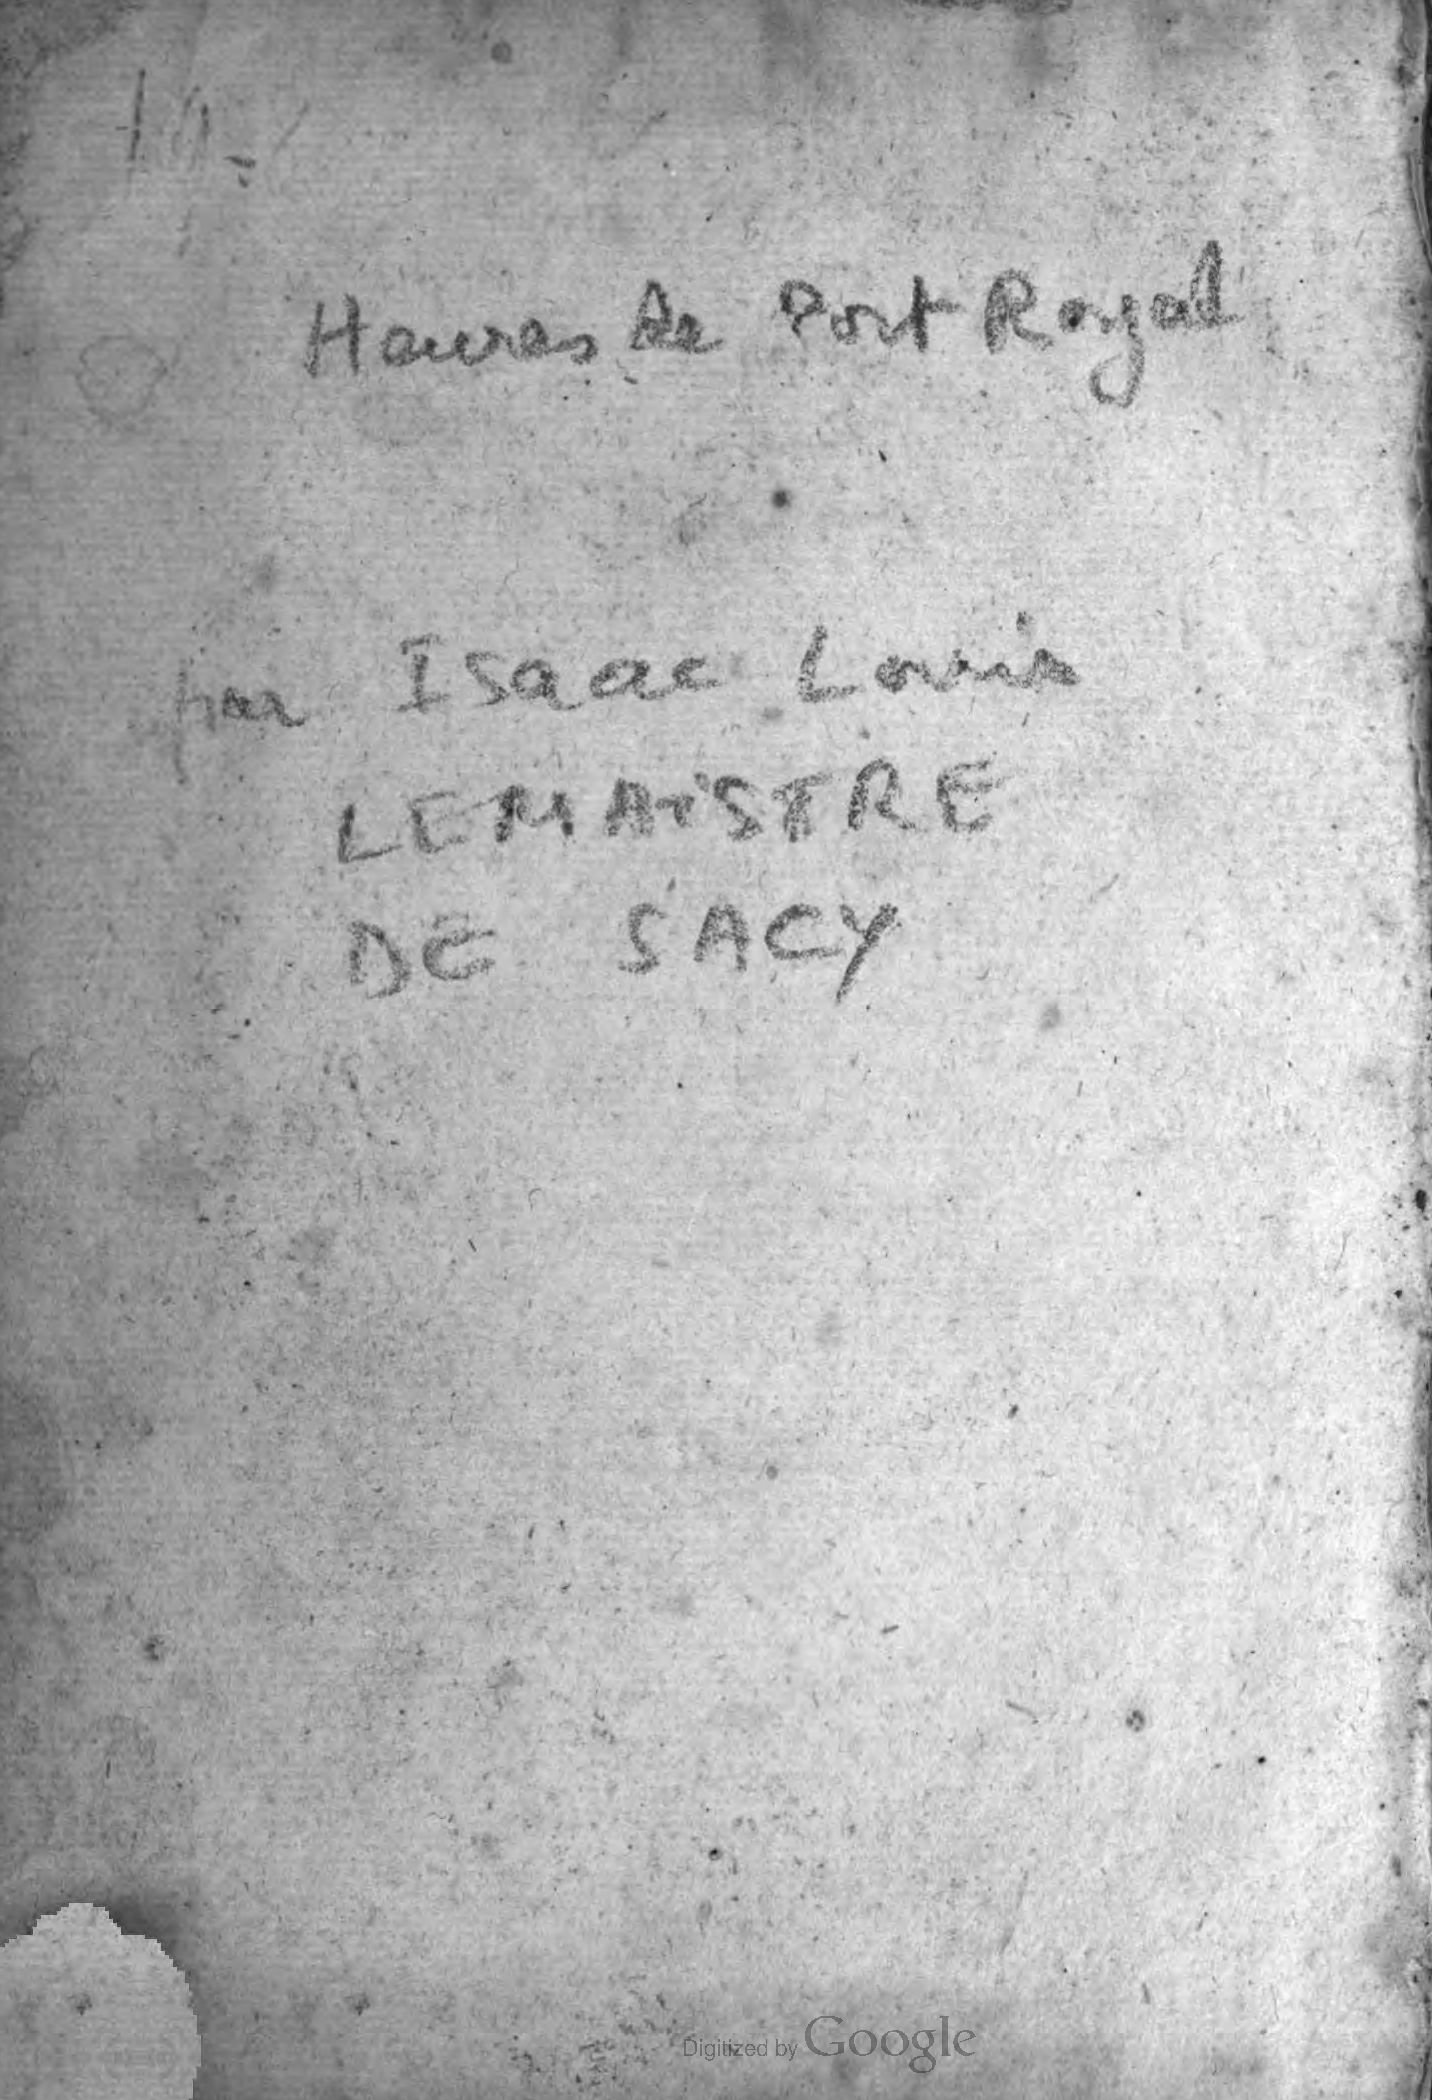 Heures de Port Royal
par Isaac Louis
LEMAISTRE
DE SACY
Digitized by Google